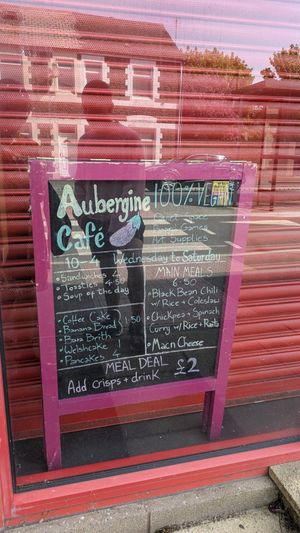 Aubergine
Café
100% VEGAN
Quiet Space
Board Games
Art Supplies
10-4 Wednesday to Saturday
• Sandwiches 4
• Toasties 4.50
• Soup of the day
• Coffee Cake
• Banana Bread
• Bara Brith
• Welshcake 1
• Pancakes 4
3.50
MAIN MEALS
6.50
• Black Bean Chilli
w/ Rice + Coleslaw
• Chickpea + Spinach
Curry w/ Rice + Raita
• Mac n Cheese
MEAL DEAL
Add crisps + drink £2